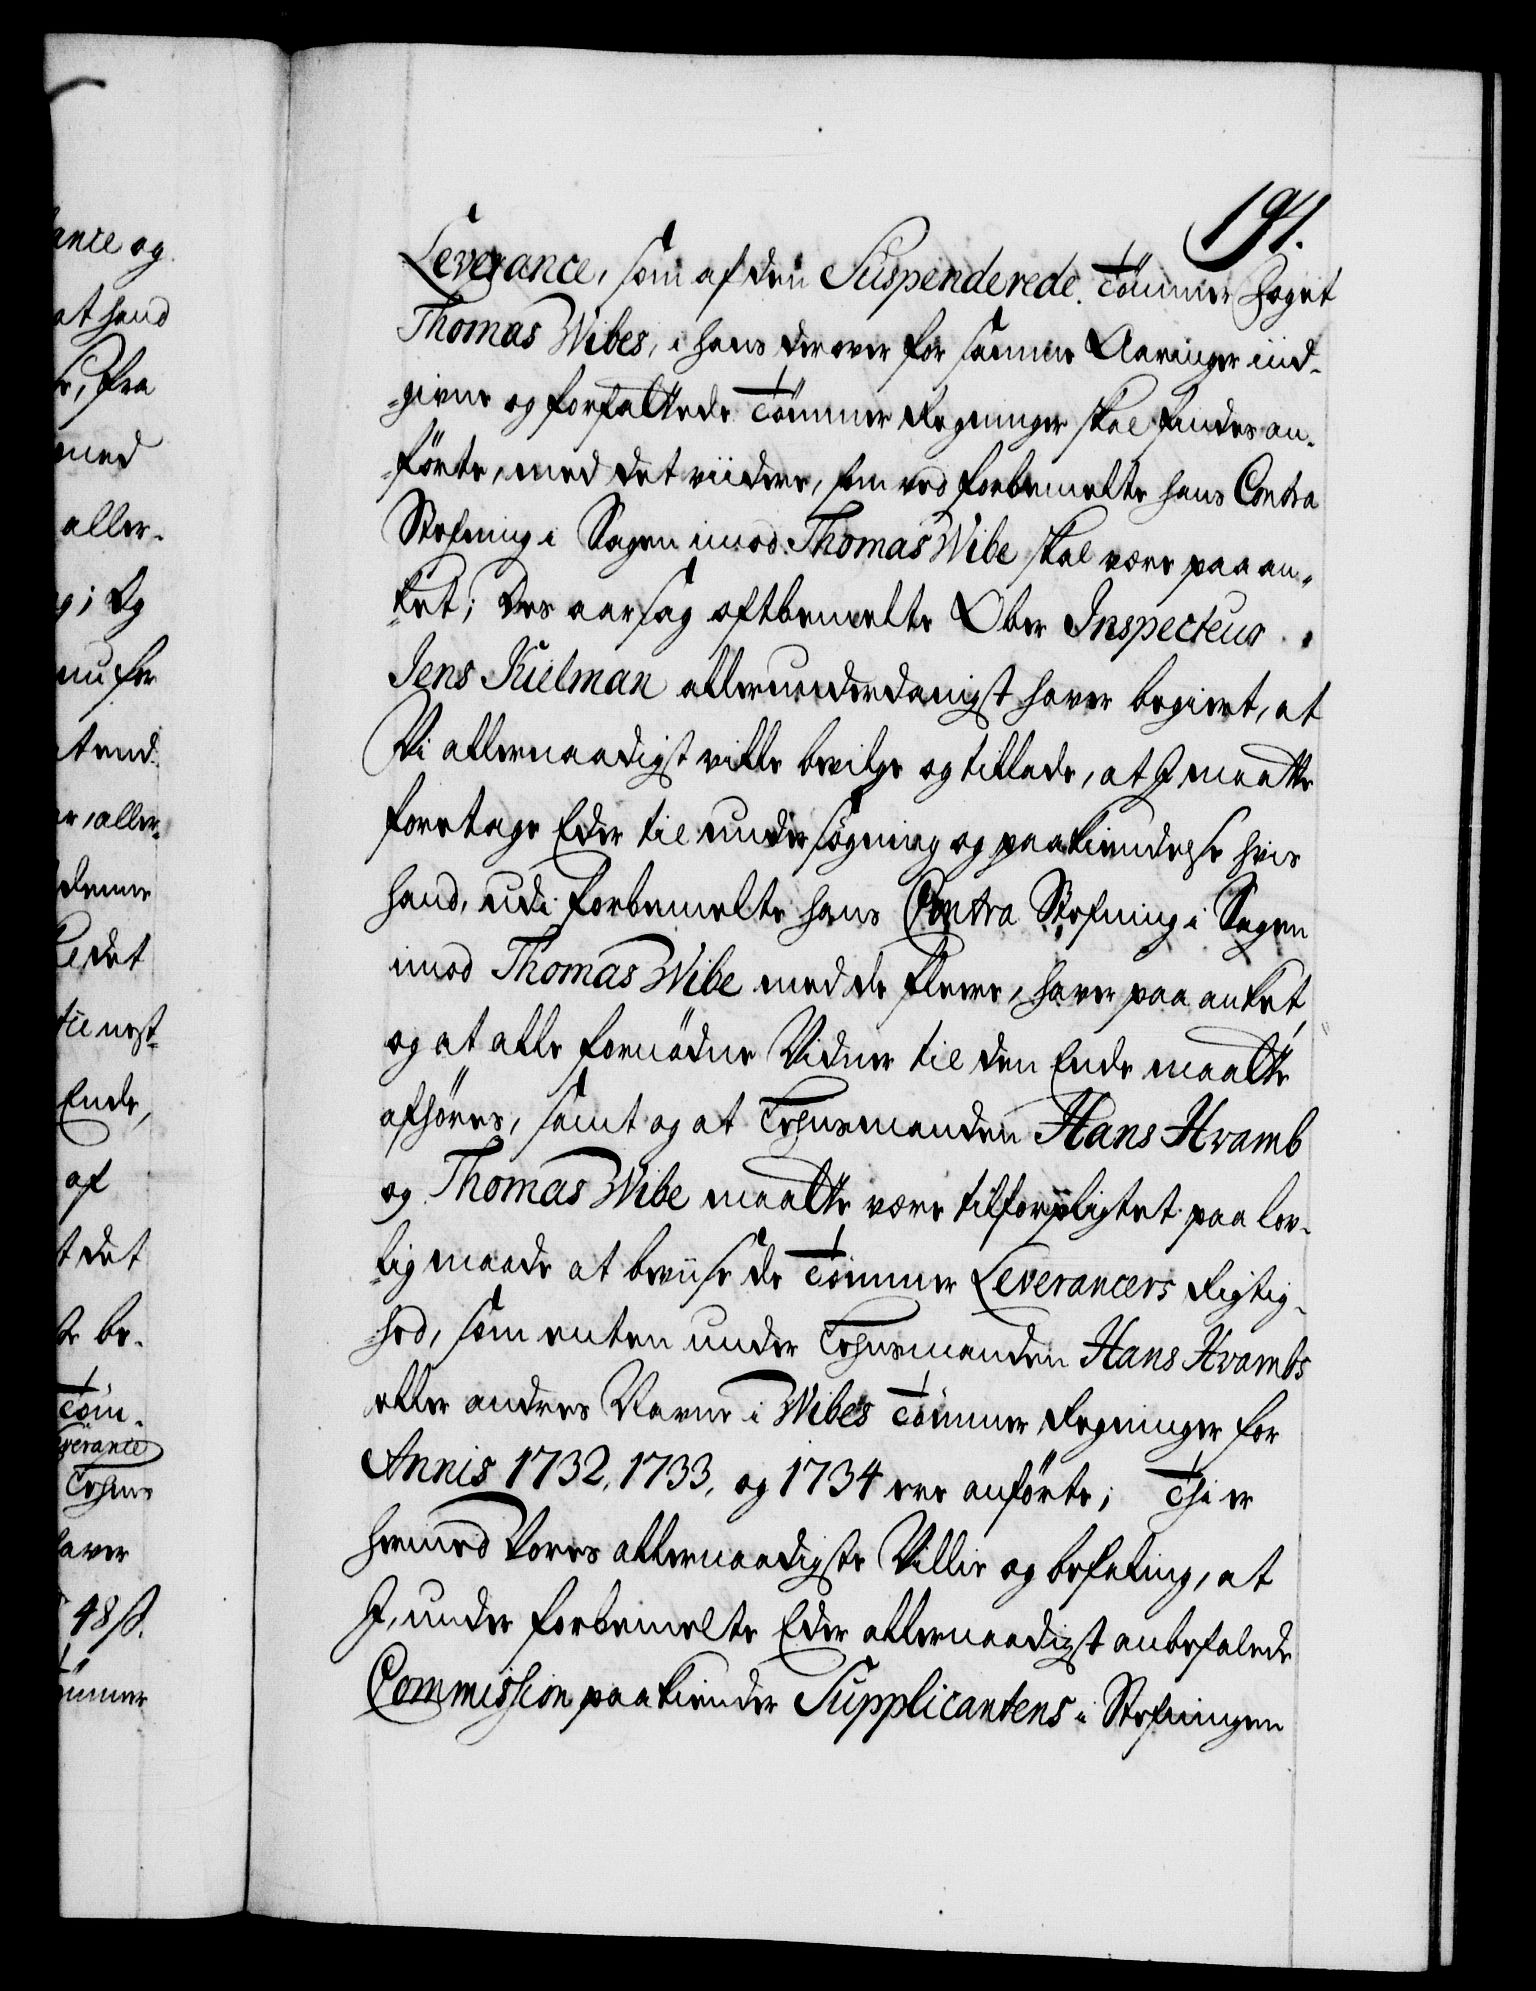 191.
Leverance, som af den Suspenderede Tömmer Foget
Thomas Wibes, i hans derover for samme Aaringer ind-
-givne og forfattede Tömmer Regninger skal findes an-
-förte, med det viidere, som ved forbemelte hans Contra
Stefning i Sagen imod Thomas Wibe skal være paa an-
-ket; Des aarsag oftbemelte Ober Inspecteur
Jens Kielman allerunderdanigst haver begiert, at
Vi allernaadigst ville bevilge og tillade, at I maatte
foretage Eder til undersögning og paakiendelse hvis
hand, udi forbemelte hans Contra Stefning i Sagen
imod Thomas Wibe med de fleere, haver paa anket,
og at alle fornödne Vidner til den Ende maatte
afhöres, samt og at Tehusmanden Hans Hvamb
og Thomas Wibe maatte være tilforpligtet paa lov-
-lig maade at beviise de Tömmer Leverancers Rigtig-
-hed, som enten under Tehusmanden Hans Hvambs
eller andres Navne i Wibes Tömmer Regninger for
Annis 1732, 1733, og 1734 ere anförte; Thi er
hermed Vores allernaadigste Villie og befaling, at
I, under forbemelte Eder allernaadigst anbefalede
Commission paakiender Supplicantens i Stefningen
ance og
at hand
fra
med
aller-
og
nu for
aller-
denne
det
nest-
Ende,
af
det
be-
Töm-
everance
Tehus
haver
48 ß.
ömmer